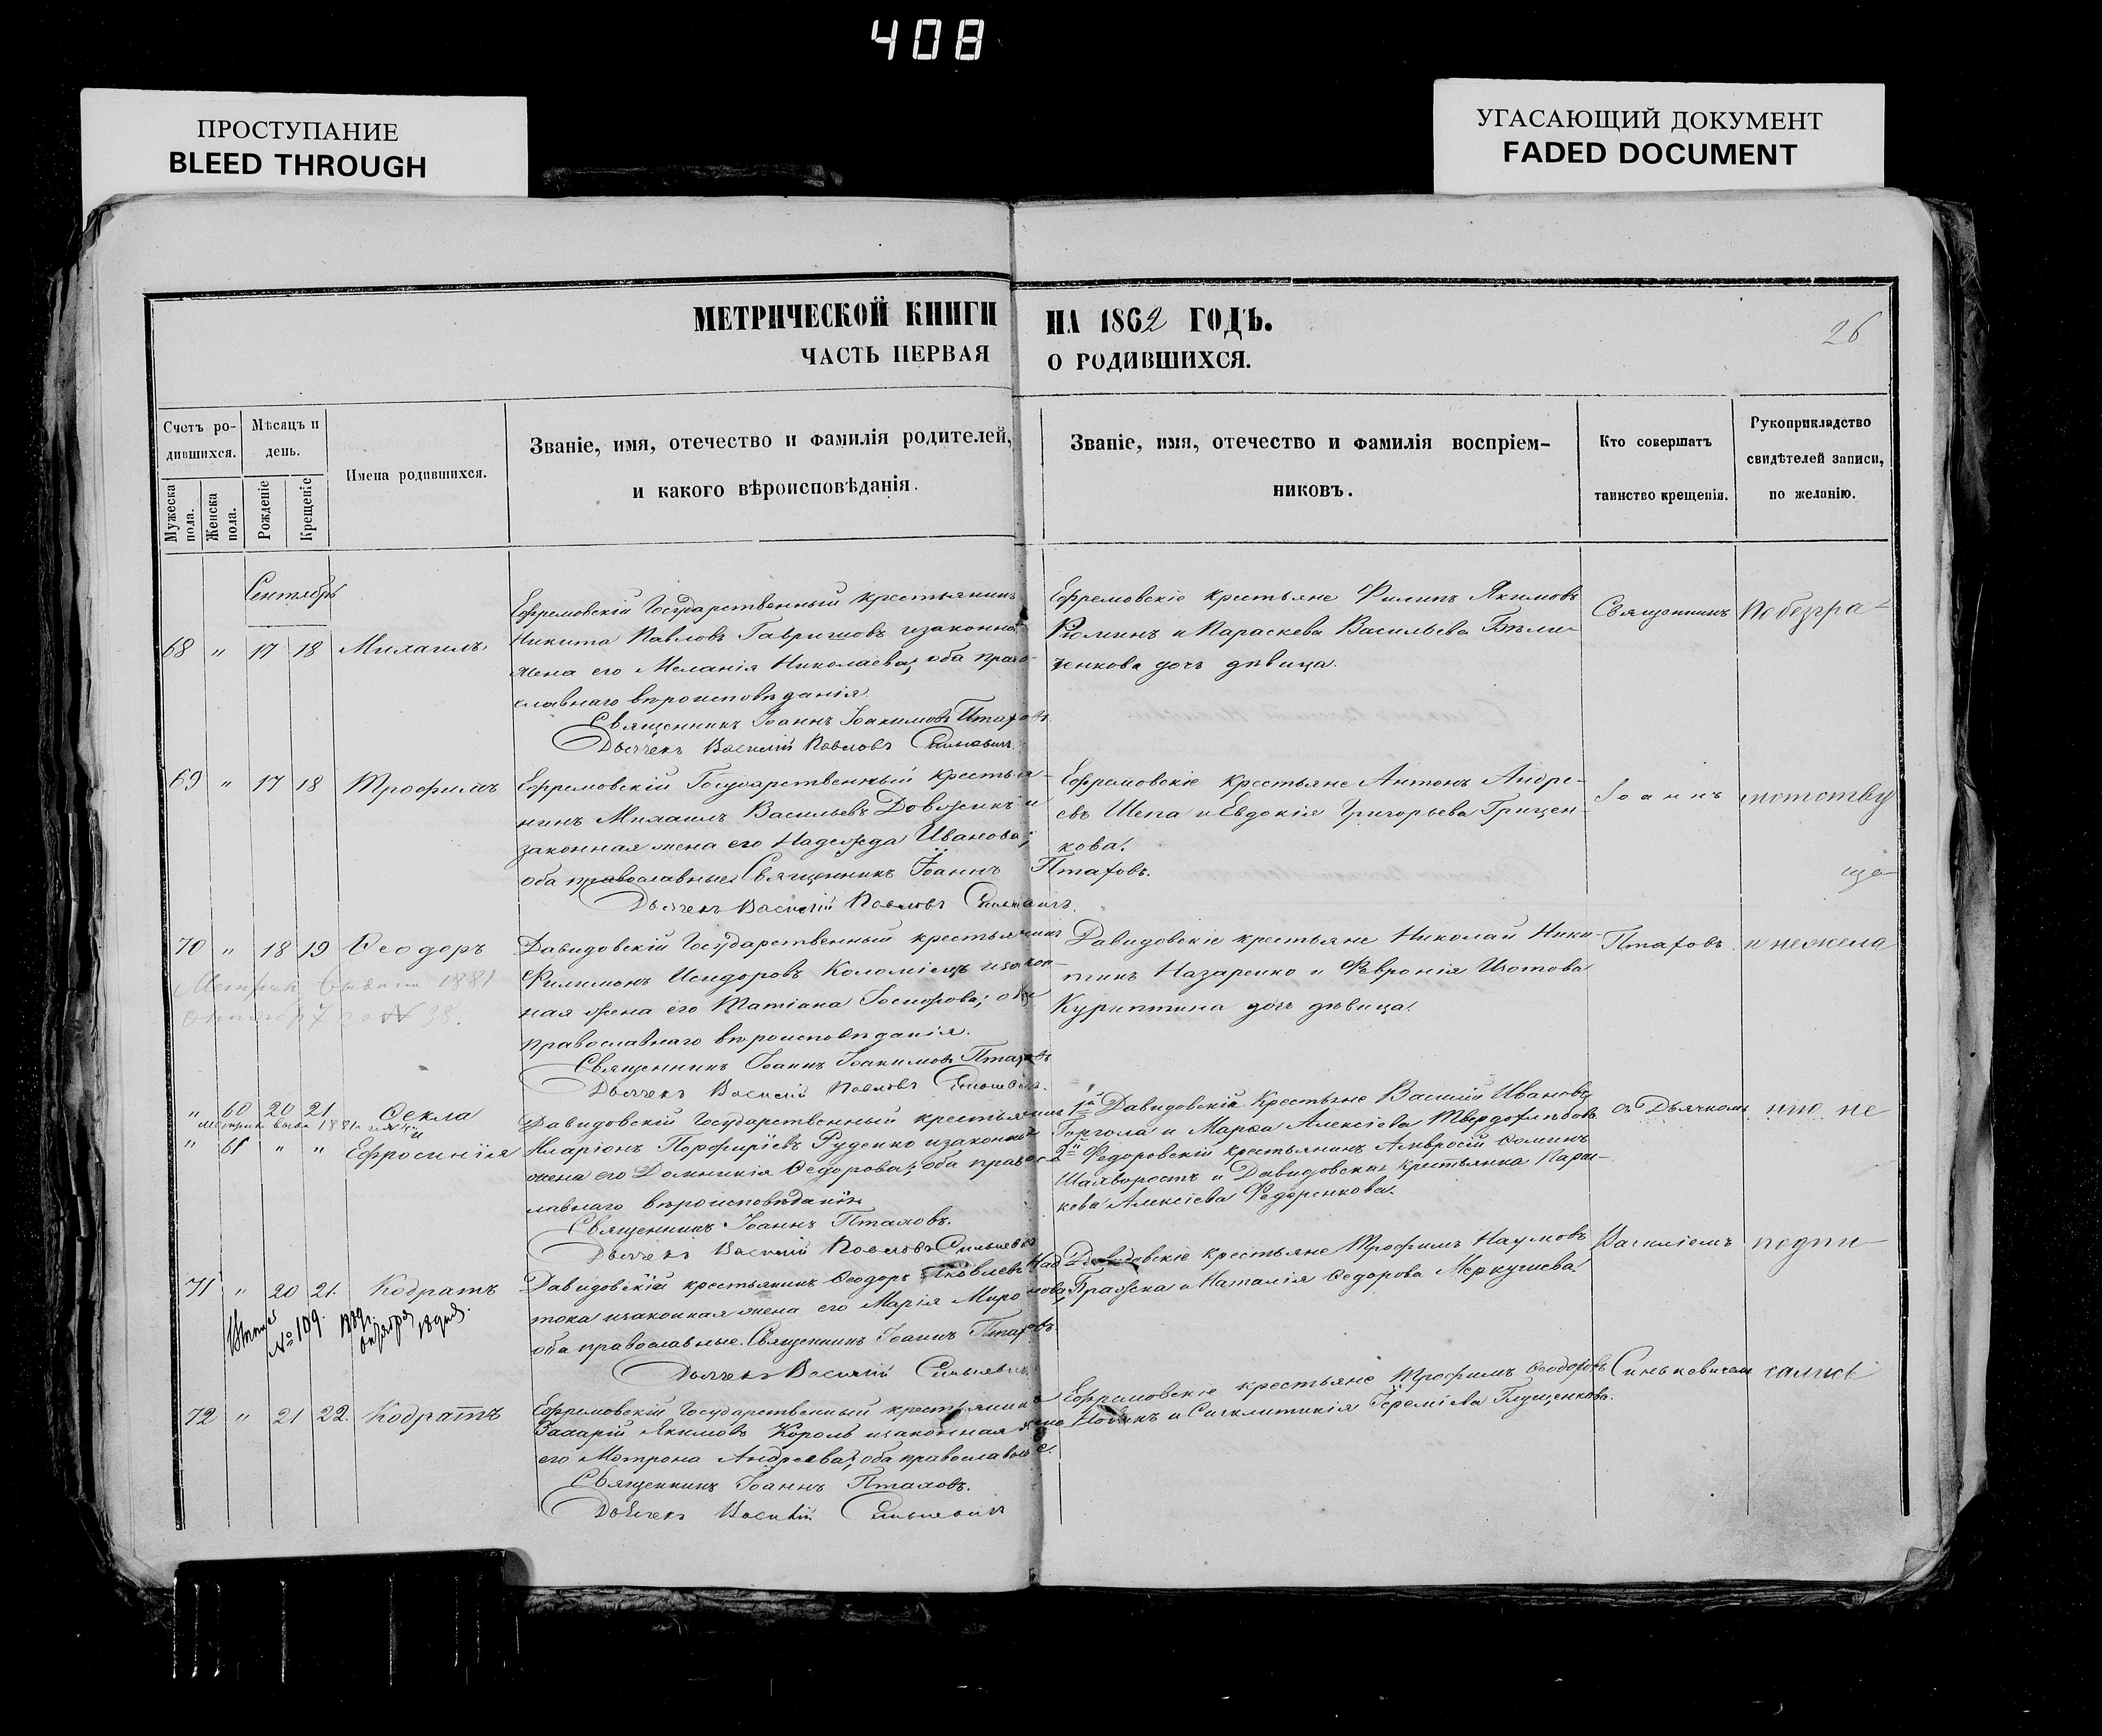 408
ПРОСТУПАНИЕ
BLEED THROUGH
УГАСАЮЩИЙ ДОКУМЕНТ
FADED DOCUMENT
МЕТРИЧЕСКОЙ КНИГИ НА 1862 ГОДЪ.
ЧАСТЬ ПЕРВАЯ О РОДИВШИХСЯ.
26
Счетъ ро-
дившихся.
Мужеска пола.
Женска пола.
Мѣсяцъ и
день.
Рожденіе
Крещеніе
Имена родившихся.
Званіе, имя, отечество и фамилія родителей,
и какого вѣроисповѣданія.
Званіе, имя, отечество и фамилія воспріем-
никовъ.
Кто совершатъ
таинство крещенія.
Рукоприкладство
свидѣтелей записи,
по желанію.
Сентябрь
68 " 17 18 Михаилъ
Ефремовскій Государственный крестьянинъ
Никита Павловъ Гавришовъ и законная
жена его Меланія Николаева; оба право-
славнаго вѣроисповѣданія.
Священникъ Іоаннъ Іоакимовъ Птаховъ.
Дьячекъ Василій Павловъ Синькевичъ.
Ефремовскіе крестьяне Филипъ Якимовъ
и Параскева Васильева Бѣли-
ченкова дочь дѣвица.
Священникъ
По безгра-
69 " 17 18 Трофимъ
Ефремовскій Государственный крестья-
нинъ Михаилъ Васильевъ Довженкъ и
законная жена его Надежда Иванова;
оба православные. Священникъ Іоаннъ Птаховъ.
Дьячекъ Василій Павловъ Синькевичъ.
Ефремовскіе крестьяне Антонъ Андре-
евъ Шепа и Евдокія Григорьева Грицен-
кова.
Іоаннъ
мотству
70 " 18 19 Ѳеодоръ
Метрик выдана 1881
октября 7 за № 38.
Давидовскій Государственный крестьянинъ
Филимонъ Исидоровъ Коломіецъ и закон-
ная жена его Татіана Іосифова; оба
православнаго вѣроисповѣданія.
Священникъ Іоаннъ Іоакимовъ Птаховъ
Дьячекъ Василій Павловъ Синькевичъ.
Давидовскіе крестьяне Николай Ники-
тинъ Назаренко и Февронія Изотова
дочь дѣвица.
Птаховъ
и нежела
" 60 20 21 Ѳекла
" 61 " " Ефросинія
Давидовскій Государственный крестьянинъ
Иларіонъ Порфиріевъ Руденко и законная
жена его Домникія Ѳедорова; оба правос-
лавнаго вѣроисповѣданія
Священникъ Іоаннъ Птаховъ.
Дьячекъ Василій Павловъ Синькевичъ
1й Давидовскіе Крестьяне Василій Ивановъ
Горгола и Марѳа Алексіева Твердохлѣбова
2й Федоровскій крестьянинъ Амвросій Ѳоминъ
Шахворостъ и Давидовская крестьянка Парас-
кева Алексіева Федоренкова.
съ Дьячкомъ
нію не
71 " 20 21. Кодратъ
№ 109. 1889
октября 18 дня.
Давидовскій крестьянинъ Ѳеодоръ Яковлевъ Над
тока и законная жена его Марія Миронова,
оба православные. Священникъ Іоаннъ Птаховъ.
Дьячекъ Василій Синькевичъ.
Давидовскіе крестьяне Трофимъ Наумовъ
Бражека и Наталія Ѳедорова Меркушева.
Василіемъ
подпи-
72 " 21 22. Кодратъ
Ефремовскій Государственный крестьянинъ
Захарій Якимовъ Король и законная жена
его Мотрона Андреева; оба православные.
Священникъ Іоаннъ Птаховъ.
Дьячекъ Василій Синькевичъ
Ефремовскіе крестьяне Трофимъ Ѳеодоровъ
Новакъ и Сигклитикія Іереміева Глущенкова.
Синькевичемъ